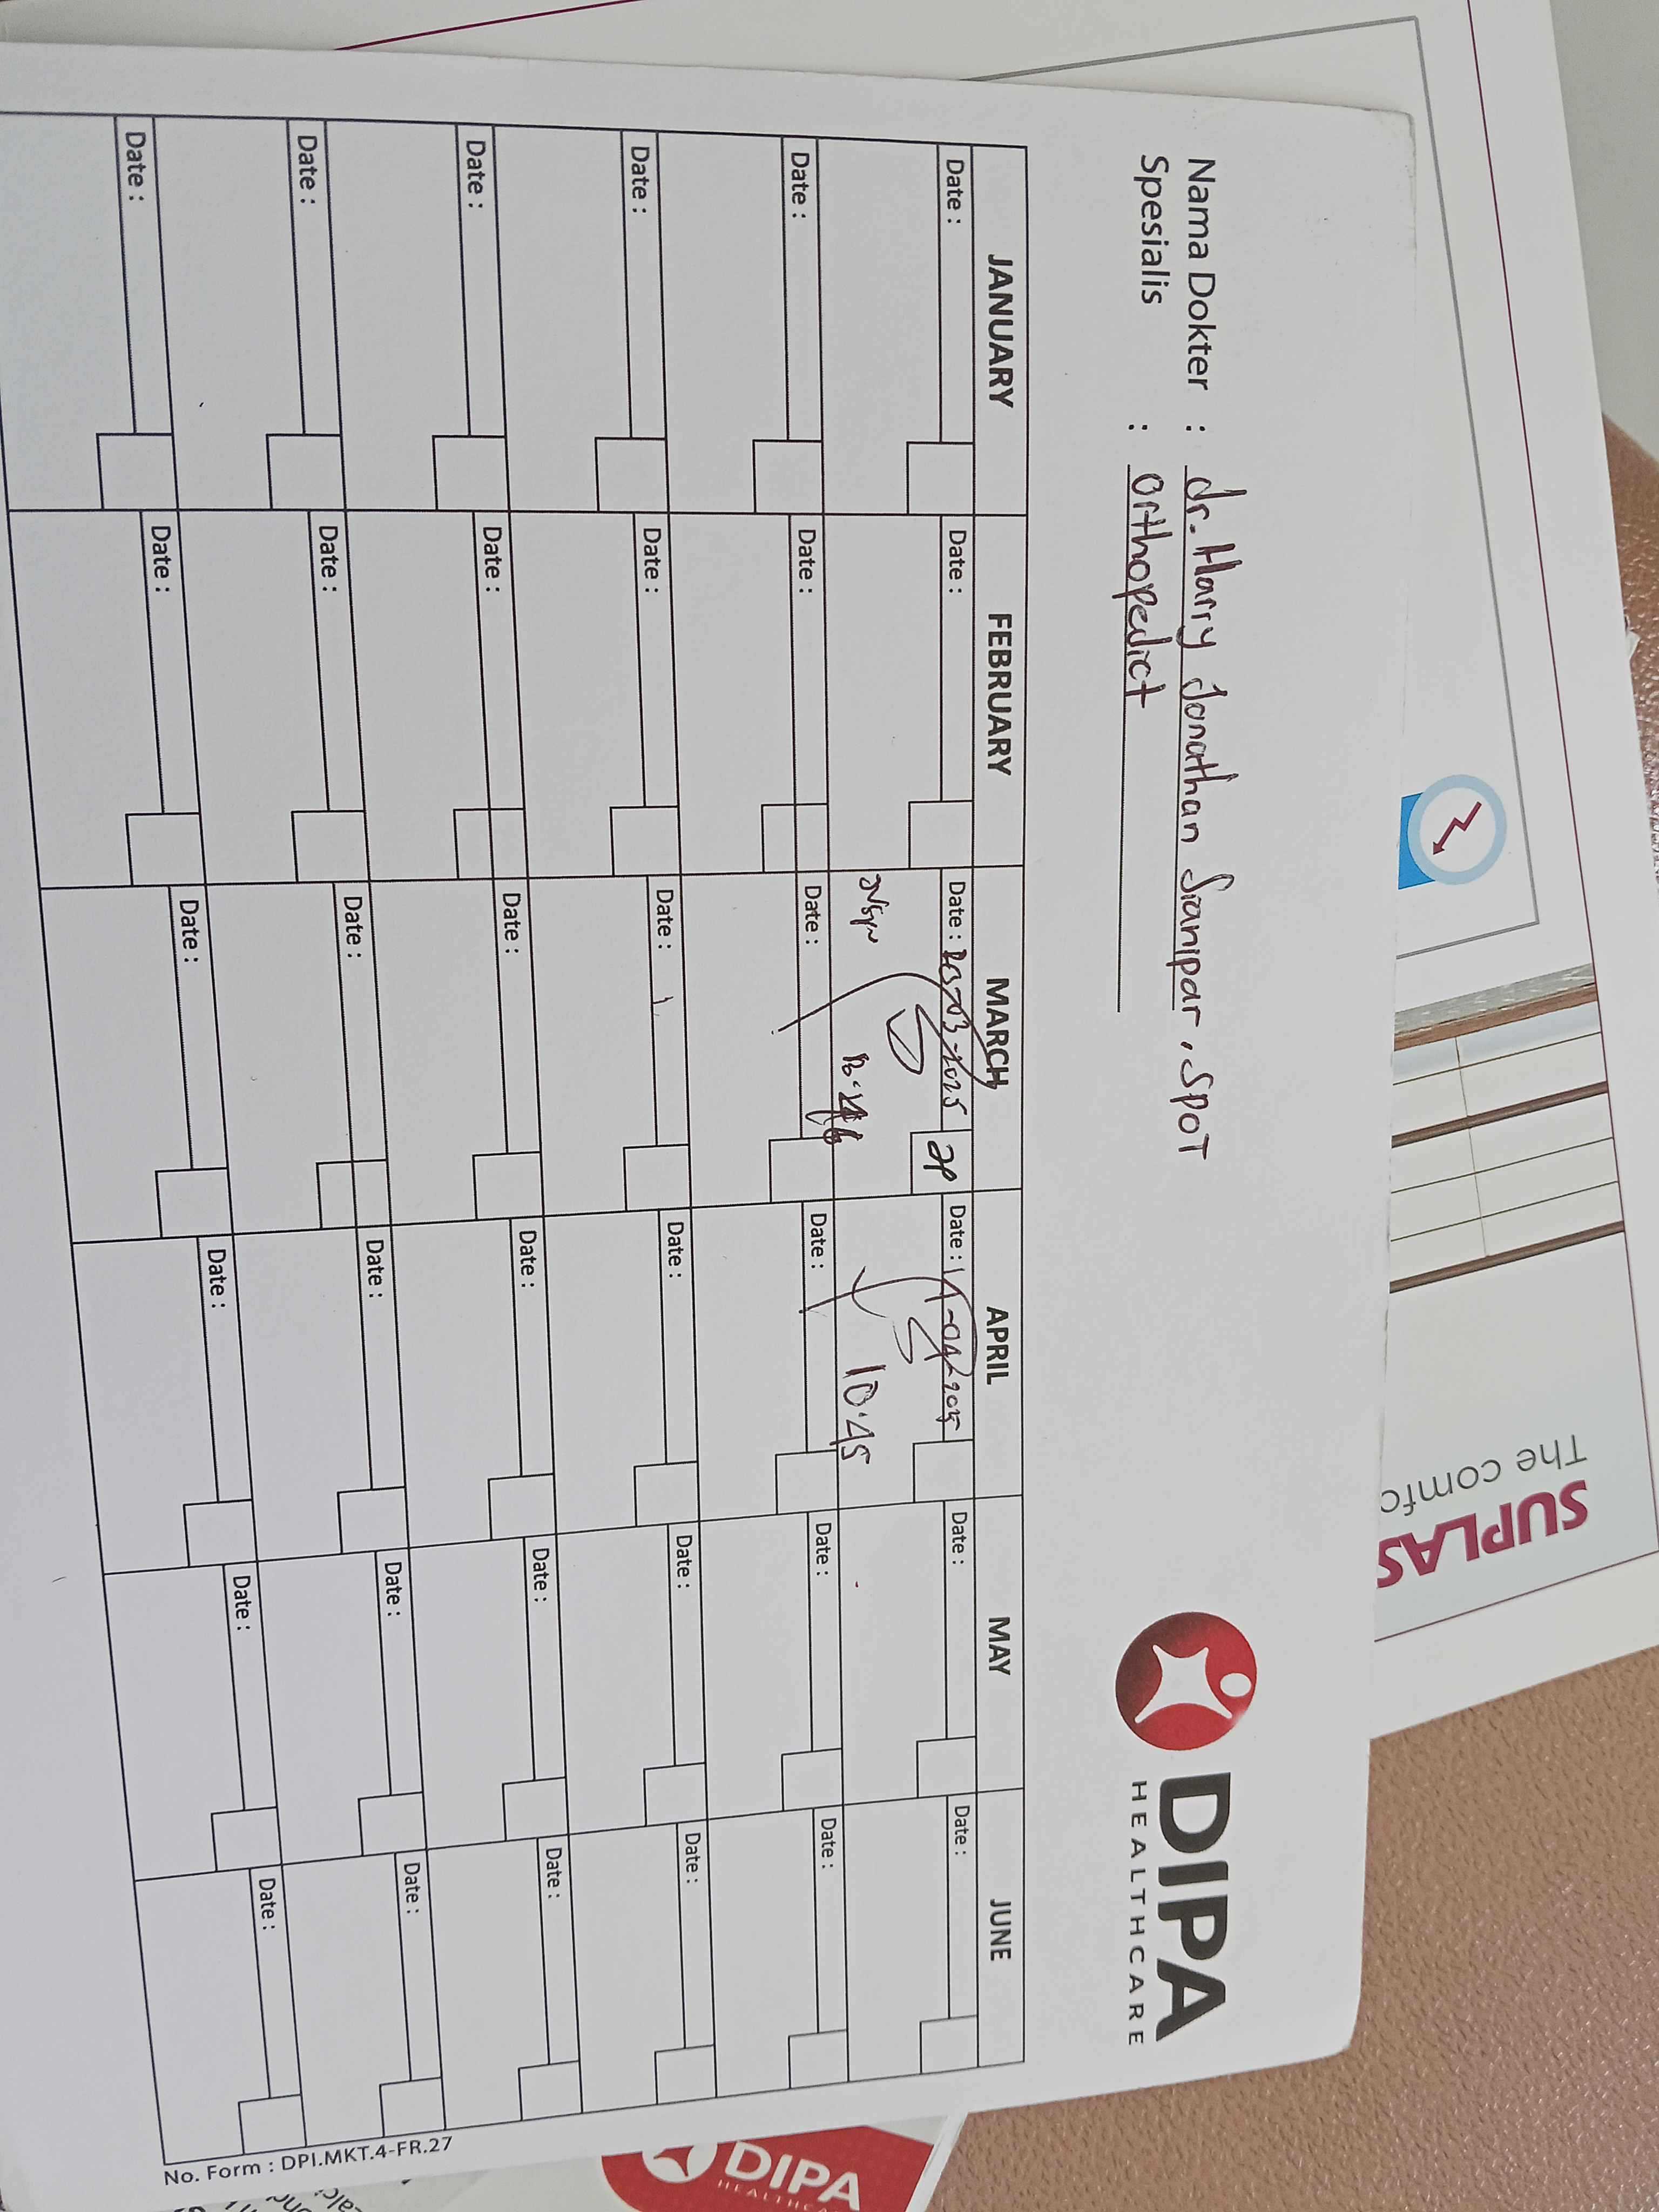 Nama Dokter : dr. Harry Jonathan Sianipar, SpOT
Spesialis : Orthopedict
DIPA
HEALTHCARE
JANUARY FEBRUARY MARCH APRIL MAY JUNE
Date : Date : Date : 20-03-2025 Date : 14-04-2025 Date : Date :
10.45
Date : Date : Date : Date : Date : Date :
Date : Date : Date : Date : Date : Date :
Date : Date : Date : Date : Date : Date :
Date : Date : Date : Date : Date : Date :
Date : Date : Date : Date : Date : Date :
No. Form : DPI.MKT.4-FR.27
SUPLAS
The comfo
DIPA